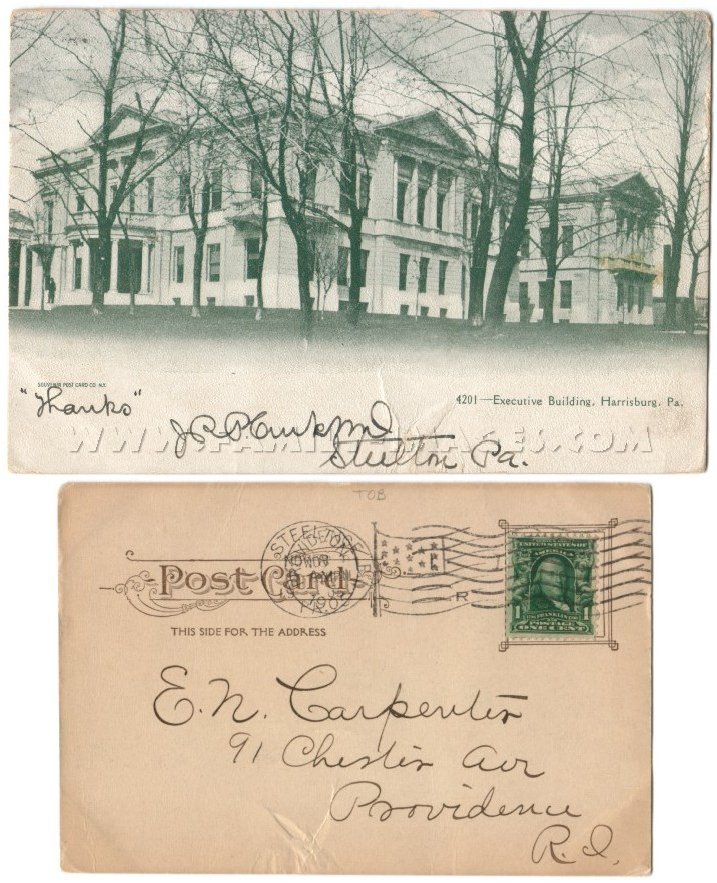 SOUVENIR POST CARD CO. N.Y.
4201—Executive Building, Harrisburg, Pa.
"Thanks"
Steelton Pa.
TOB
STEELTON
NOV
Post Card
THIS SIDE FOR THE ADDRESS
UNITED STATES OF
AMERICA
1 1
POSTAGE
ONE CENT
R
E. N. Carpenter
91 Chester Ave
Providence
R.I.